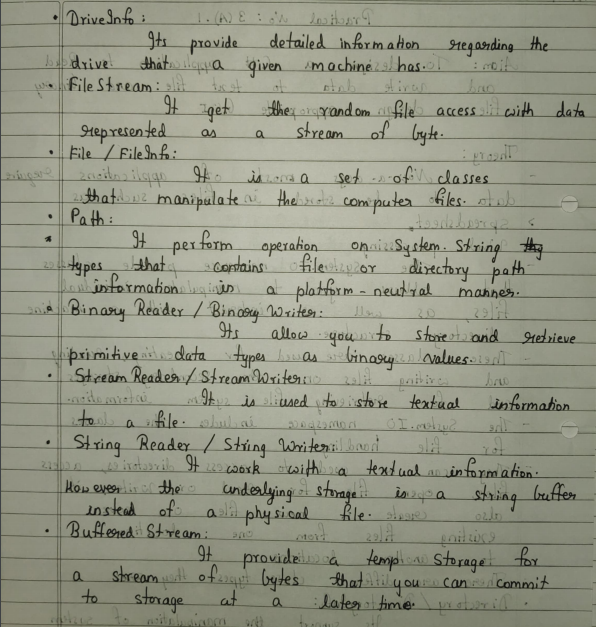 • DriveInfo :
Its provide detailed information regarding the
drive that a given machine has.
• FileStream :
It get the random file access with data
represented as a stream of byte.
• File / FileInfo :
It is a set of classes
that manipulate the computer files.
• Path :
It perform operation on System. String
types that contains file or directory path
information in a platform-neutral manner.
• Binary Reader / Binary Writer :
Its allow you to store and retrieve
primitive data types as binary values.
• Stream Reader / Stream Writer :
It is used to store textual information
to a file.
• String Reader / String Writer :
It work with a textual information.
However the underlying storage is a string buffer
instead of a physical file.
• Buffered Stream :
It provide a temp Storage for
a stream of bytes that you can commit
to storage at a later time.